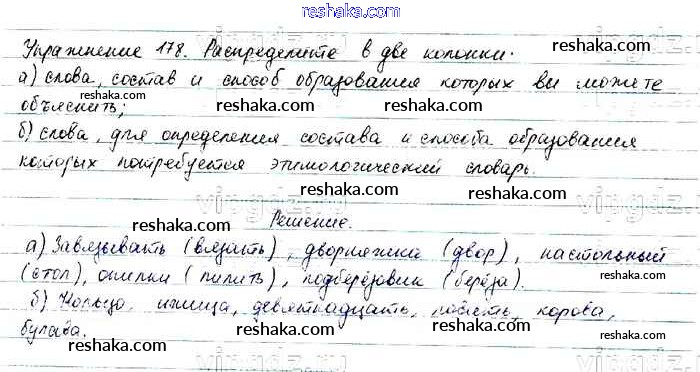 reshaka.com
Упражнение 178. Распределите в две колонки.
reshaka.com
а) слова, состав и способ образования которых вы можете
reshaka.com
reshaka.com
объяснить;
reshaka.com
б) слова, для определения состава и способа образования
reshaka.com
которых потребуется этимологический словарь.
reshaka.com
vipgdz.ru
reshaka.com
Решение.
reshaka.com
а) Завязывать (вязать), дворняжка (двор), настольный
reshaka.com
(стол), опилки (пилить), подберёзовик (берёза).
reshaka.com
б) Кольцо, ижица, девятнадцать, корова,
reshaka.com
булава.
reshaka.com
reshaka.com
reshaka.com